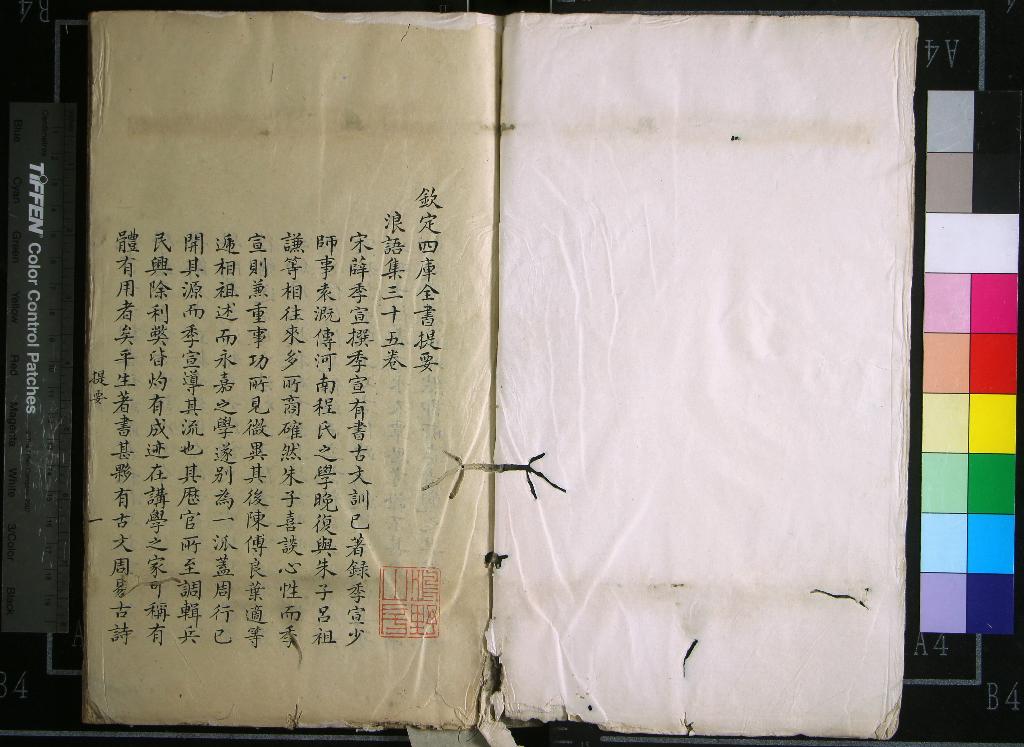 欽定四庫全書提要
浪語集三十五卷
宋薛季宣撰季宣有書古文訓已著録季宣少
師事袁溉傳河南程氏之學晚復與朱子呂祖
謙等相往來多所商確然朱子喜談心性而季
宣則兼重事功所見微異其後陳傅良葉適等
遞相祖述而永嘉之學遂别為一派蓋周行已
開其源而季宣導其流也其歷官所至調輯兵
民興除利弊皆灼有成迹在講學之家可稱有
體有用者矣平生著書甚夥有古文周易古詩
提要
一
TIFFEN Color Control Patches
Blue Cyan Green Yellow Red Magenta White 3/Color Black
A4
A4
B4
B4